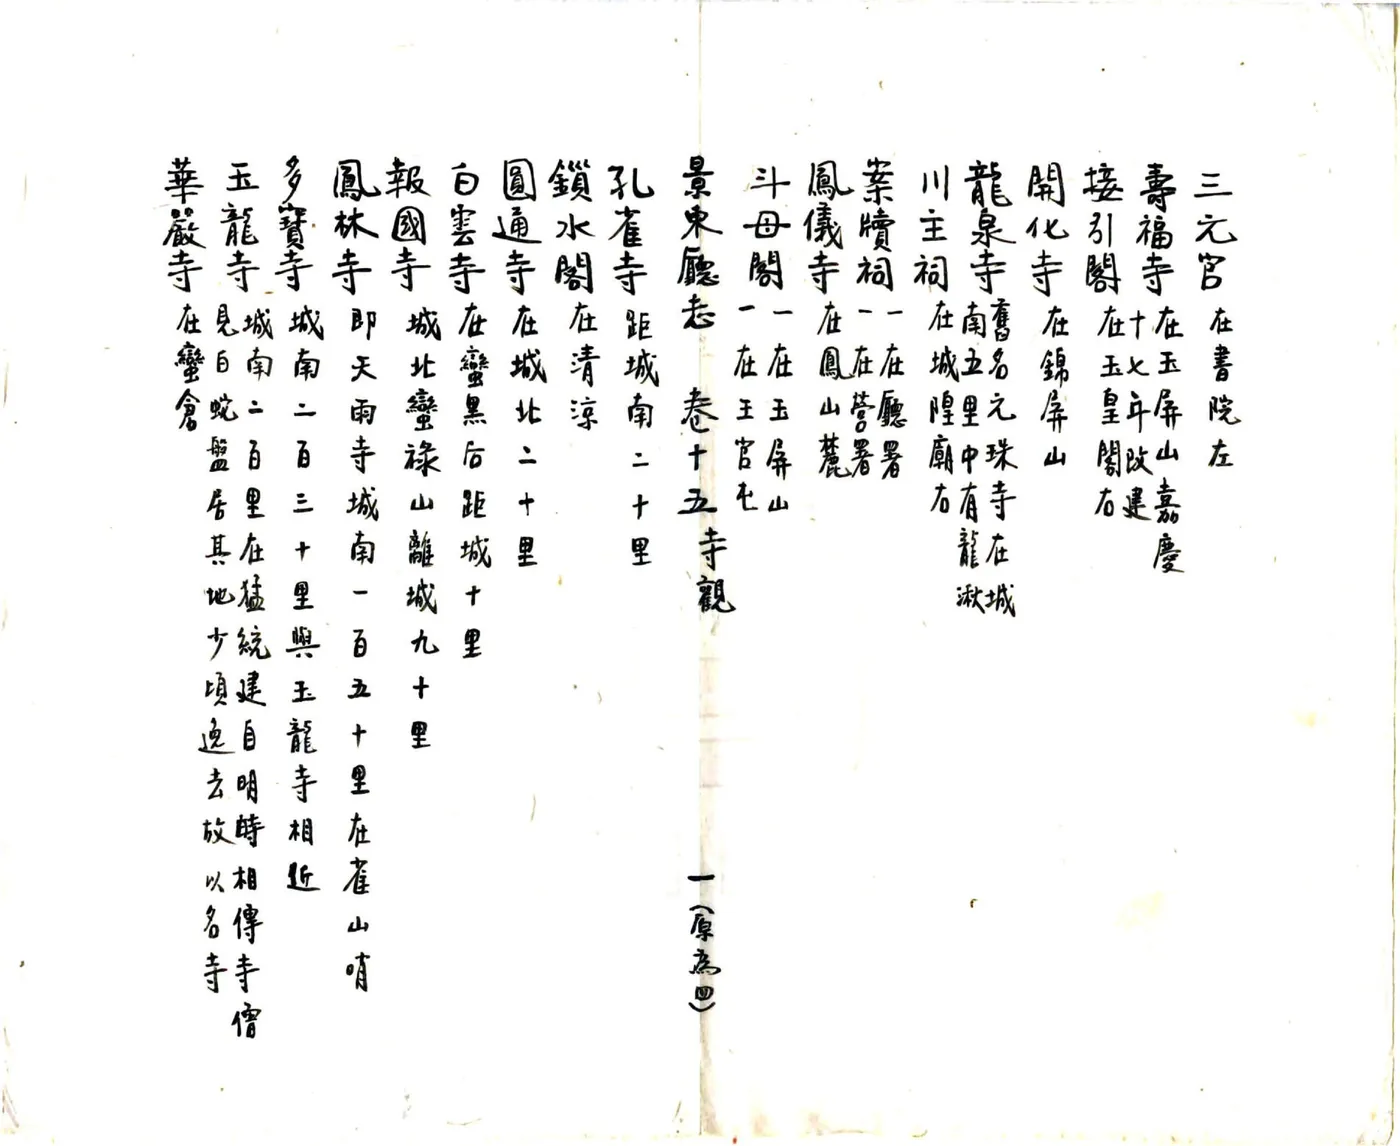 三元宮 在書院左
壽福寺 在玉屏山嘉慶
十七年改建
接引閣 在玉皇閣右
開化寺 在錦屏山
龍泉寺 舊名元珠寺在城
南五里中有龍湫
川主祠 在城隍廟右
案牘祠 一在廳署
一在營署
鳳儀寺 在鳳山麓
斗母閣 一在玉屏山
一在王官屯
景東廳志 卷十五 寺觀 一(原為四)
孔雀寺 距城南二十里
鎖水閣 在清涼
圓通寺 在城北二十里
白雲寺 在蠻黑后距城十里
報國寺 城北蠻祿山離城九十里
鳳林寺 即天雨寺城南一百五十里在雀山哨
多寶寺 城南二百三十里與玉龍寺相近
玉龍寺 城南二百里在猛統建自明時相傳寺僧
見白蛇盤居其地少頃逸去故以名寺
華嚴寺 在蠻倉